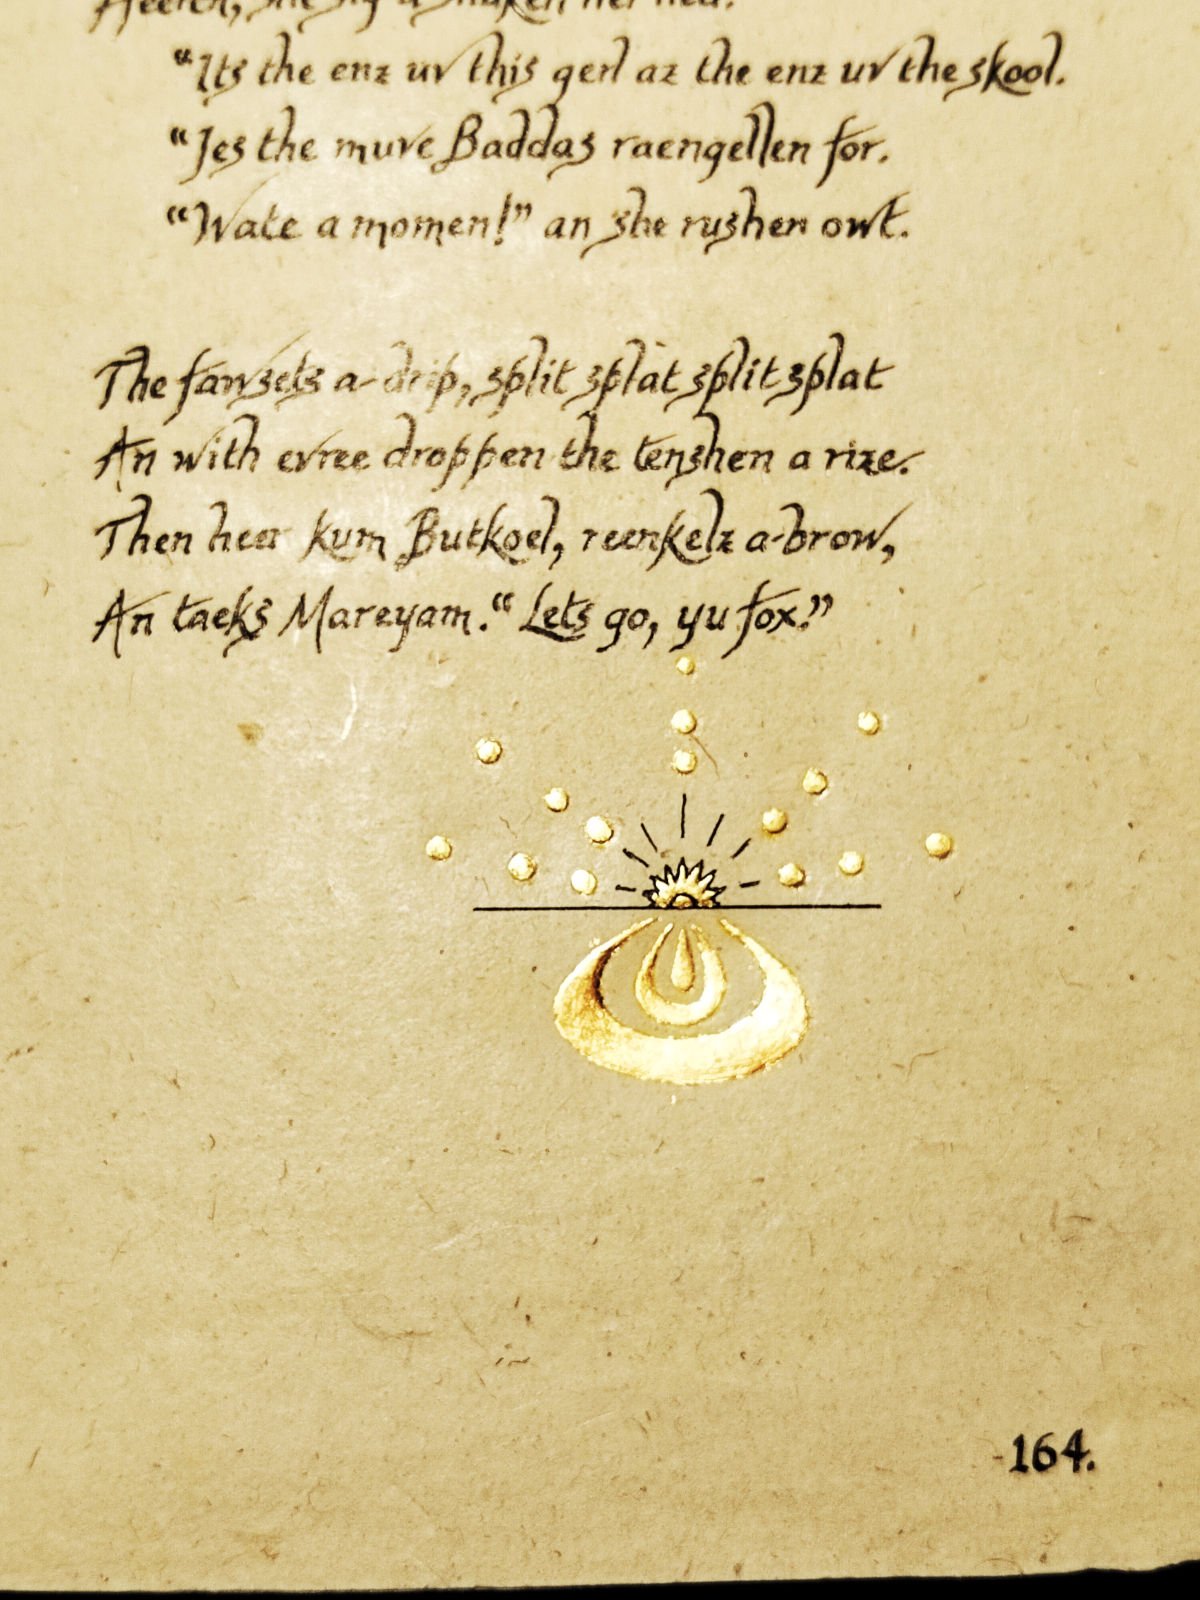 “Its the enz uv this gerl az the enz uv the skool.
“Jes the muve Baddas raengellen for.
“Wate a momen!” an she rushen owt.
The fawsets a-drip, split splat split splat
An with evree droppen the tenshen a rize.
Then heer kum Butkoel, reenkelz a-brow,
An taeks Mareyam. “Lets go, yu fox!”
164.